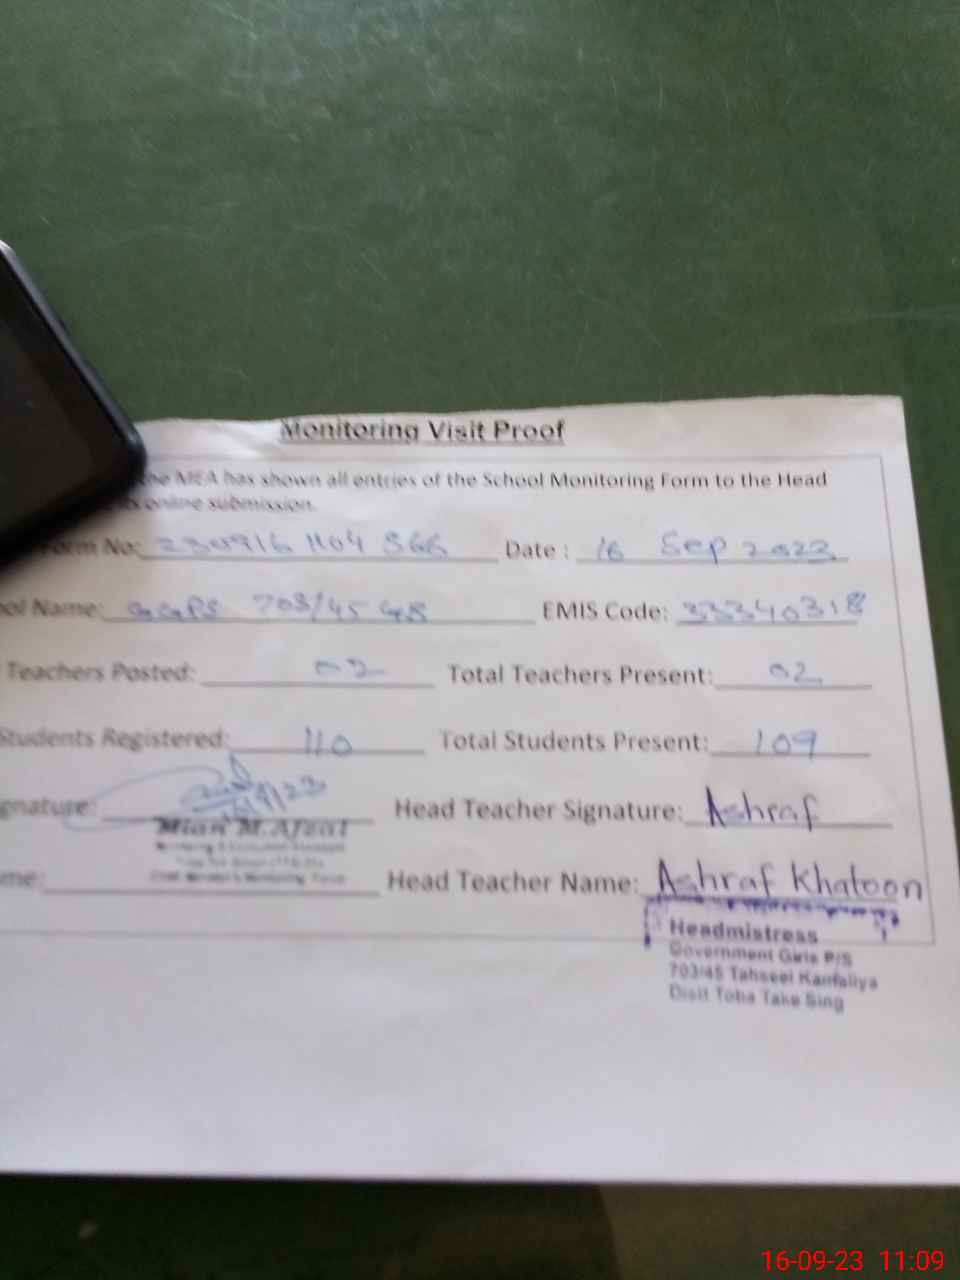 Monitoring Visit Proof
the MEA has shown all entries of the School Monitoring Form to the Head
online submission.
Form No: 230916 1104 566 Date : 16 Sep 2023
ool Name: GGPS 703/45 GB EMIS Code: 33340318
Teachers Posted: 02 Total Teachers Present: 02
Students Registered: 110 Total Students Present: 109
gnature: 16/9/23 Head Teacher Signature: Ashraf
Mian M.Afzal
me: Head Teacher Name: Ashraf Khatoon
Headmistress
Government Girls P/S
703/45 Tahseel Kamaliya
Disit Toba Take Sing
16-09-23 11:09